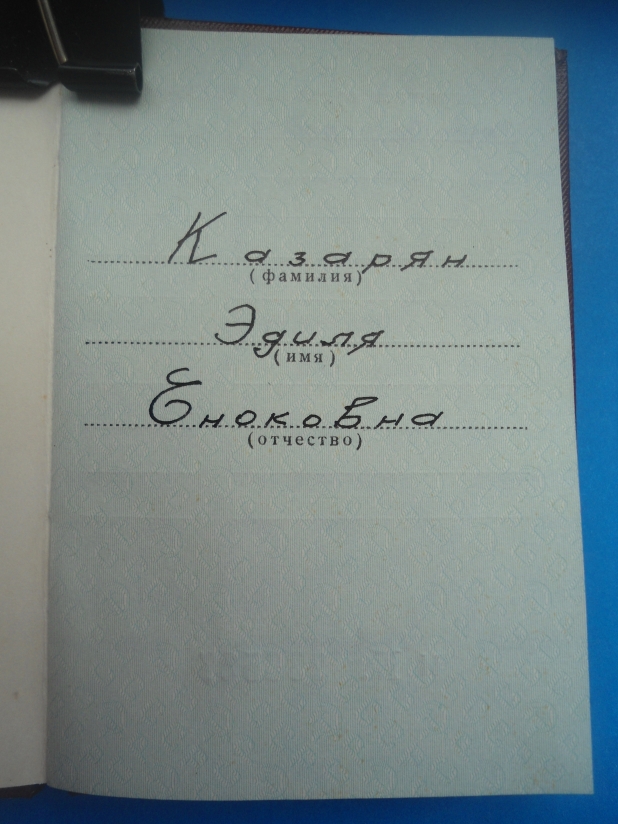 Казарян
(фамилия)
Эдиля
(имя)
Еноковна
(отчество)